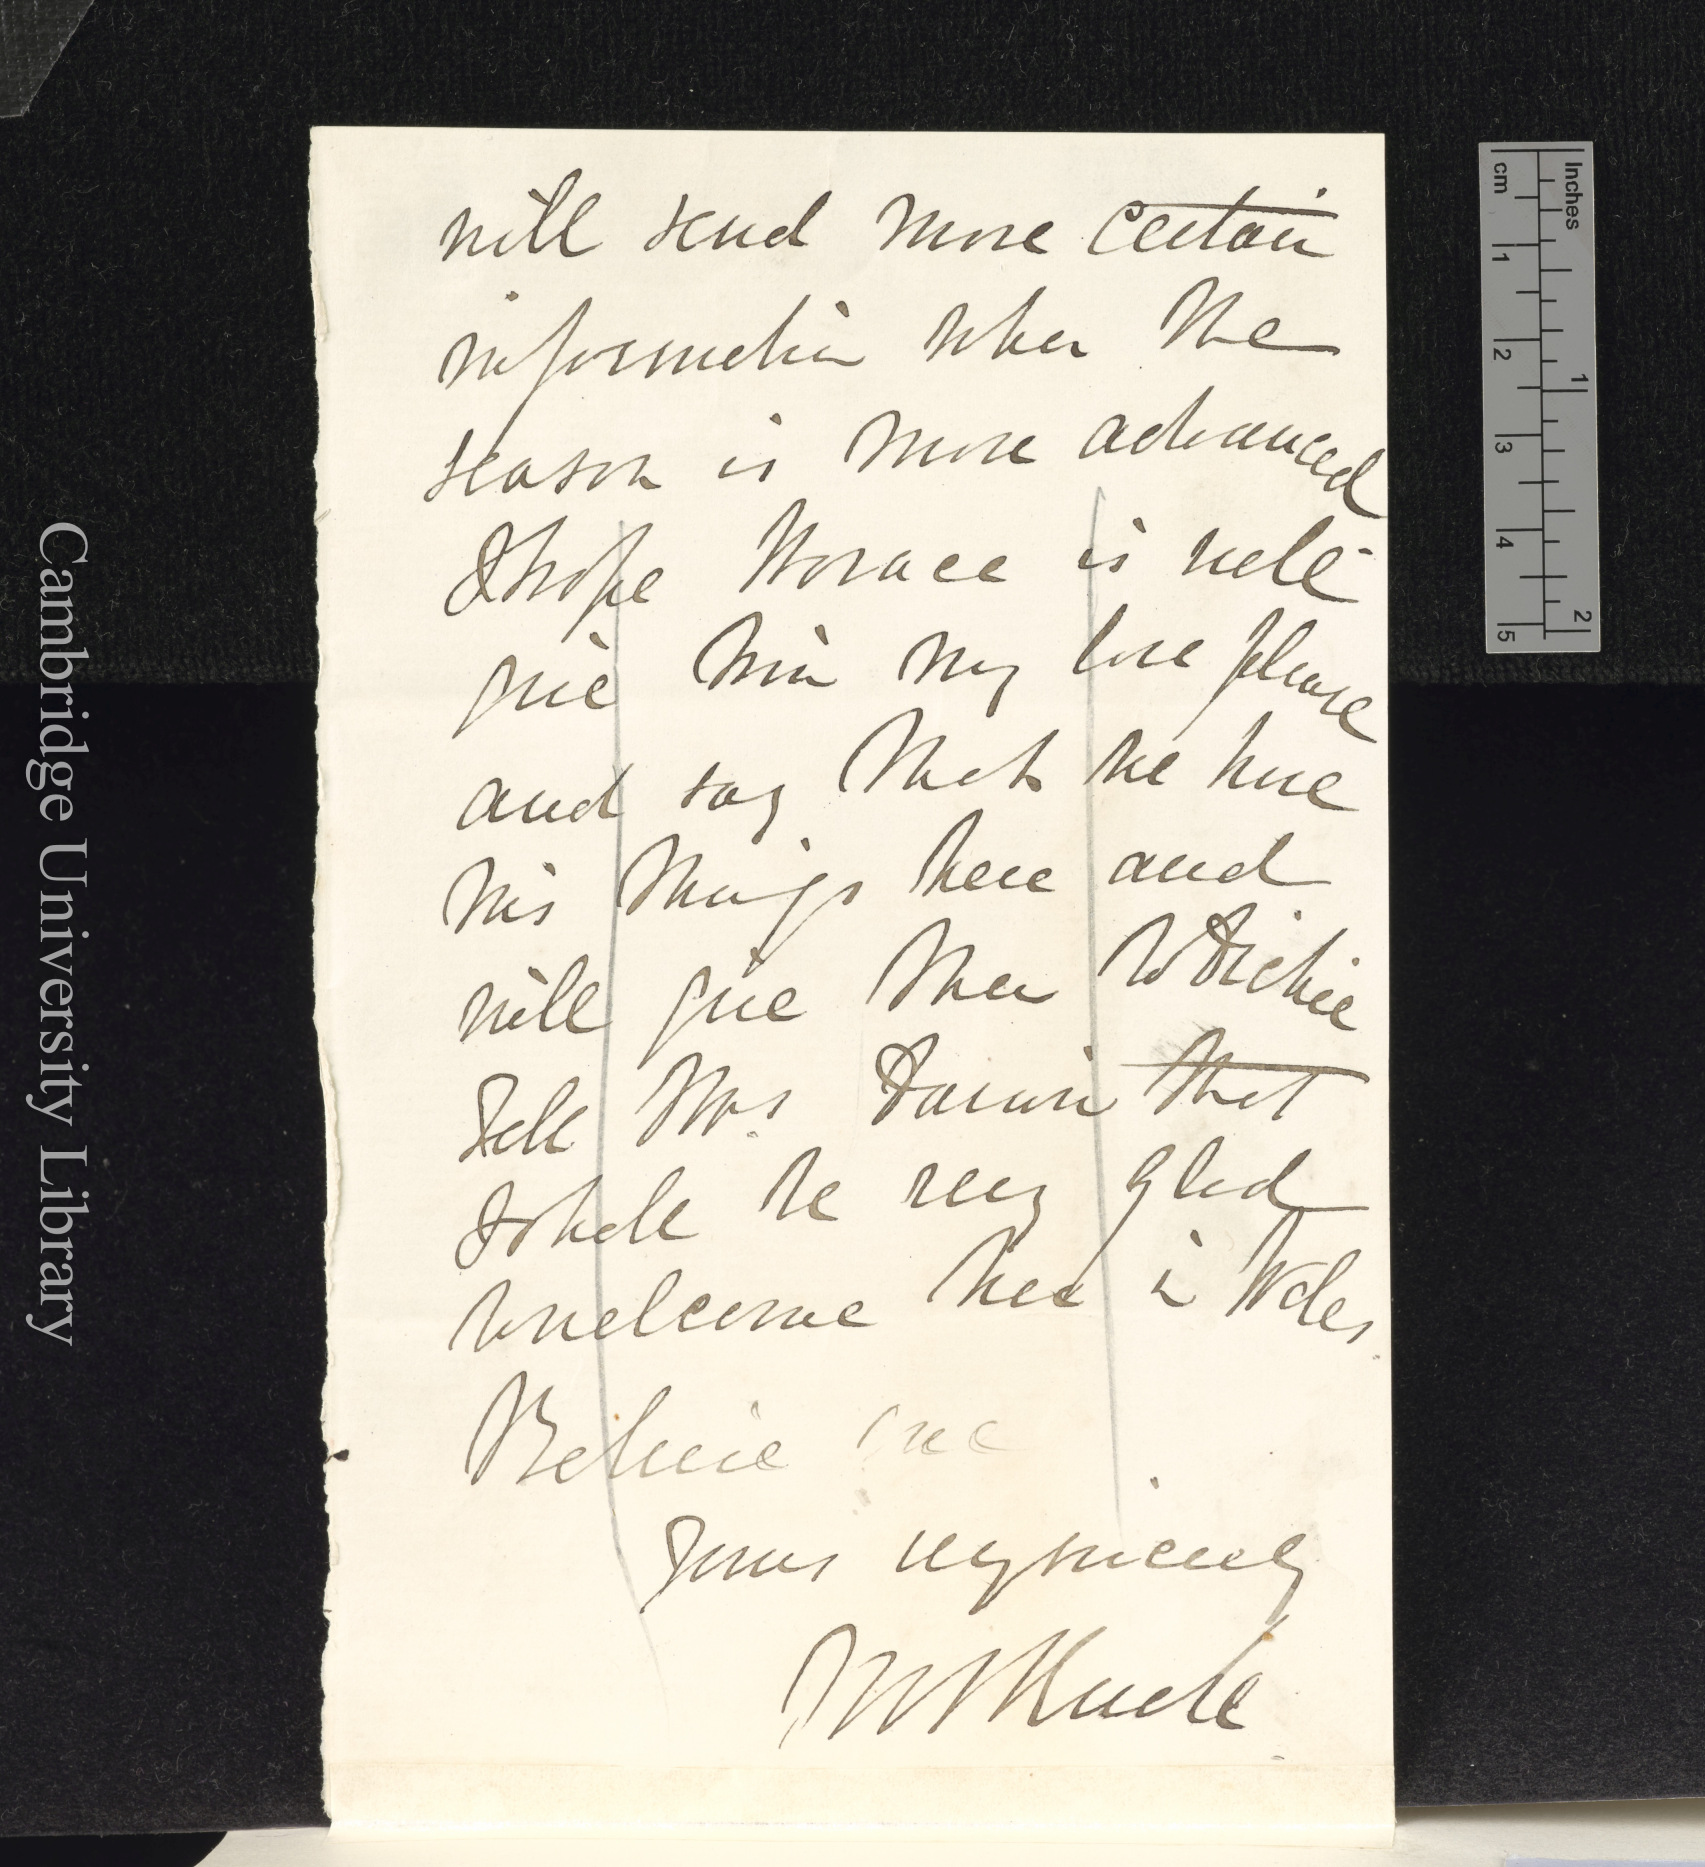 will send more certain
information when the
season is more advanced
I hope Horace is well
give him my love please
and say that we have
his things here and
will give them to Dickie
Tell Mrs Darwin that
I shall be very glad
to welcome her in Wales.
Believe me
Yours very sincerely
Cambridge University Library
Inches
cm
1
2
1
3
4
2
5